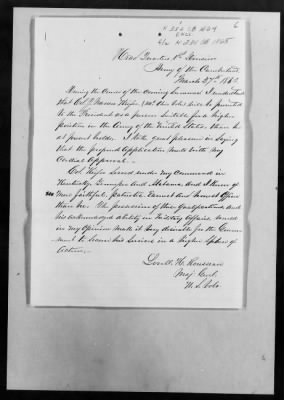 6
Head Quarters 1st Division
Army of the Cumberland,
March 27th 1863
During the course of the coming Summer I understand
that Col.
to the President as a person suitable for a higher
position in the Army of the United States, than he
at present holds. I take great pleasure in saying
that the proposed Application meets with my
Cordial Approval.
Col. served under my command in
Kentucky, Tennessee And Alabama And I know of
no more faithful, Patriotic Earnest and honest Officer
than he. The possession of these Qualifications, and
his acknowledged ability in Military Affairs, would
in my Opinion make it very desirable for the Govern-
ment to secure his Services in a Higher Sphere of
Action.
Lovell H. Rousseau
Maj. Genl.
U.S. Vols